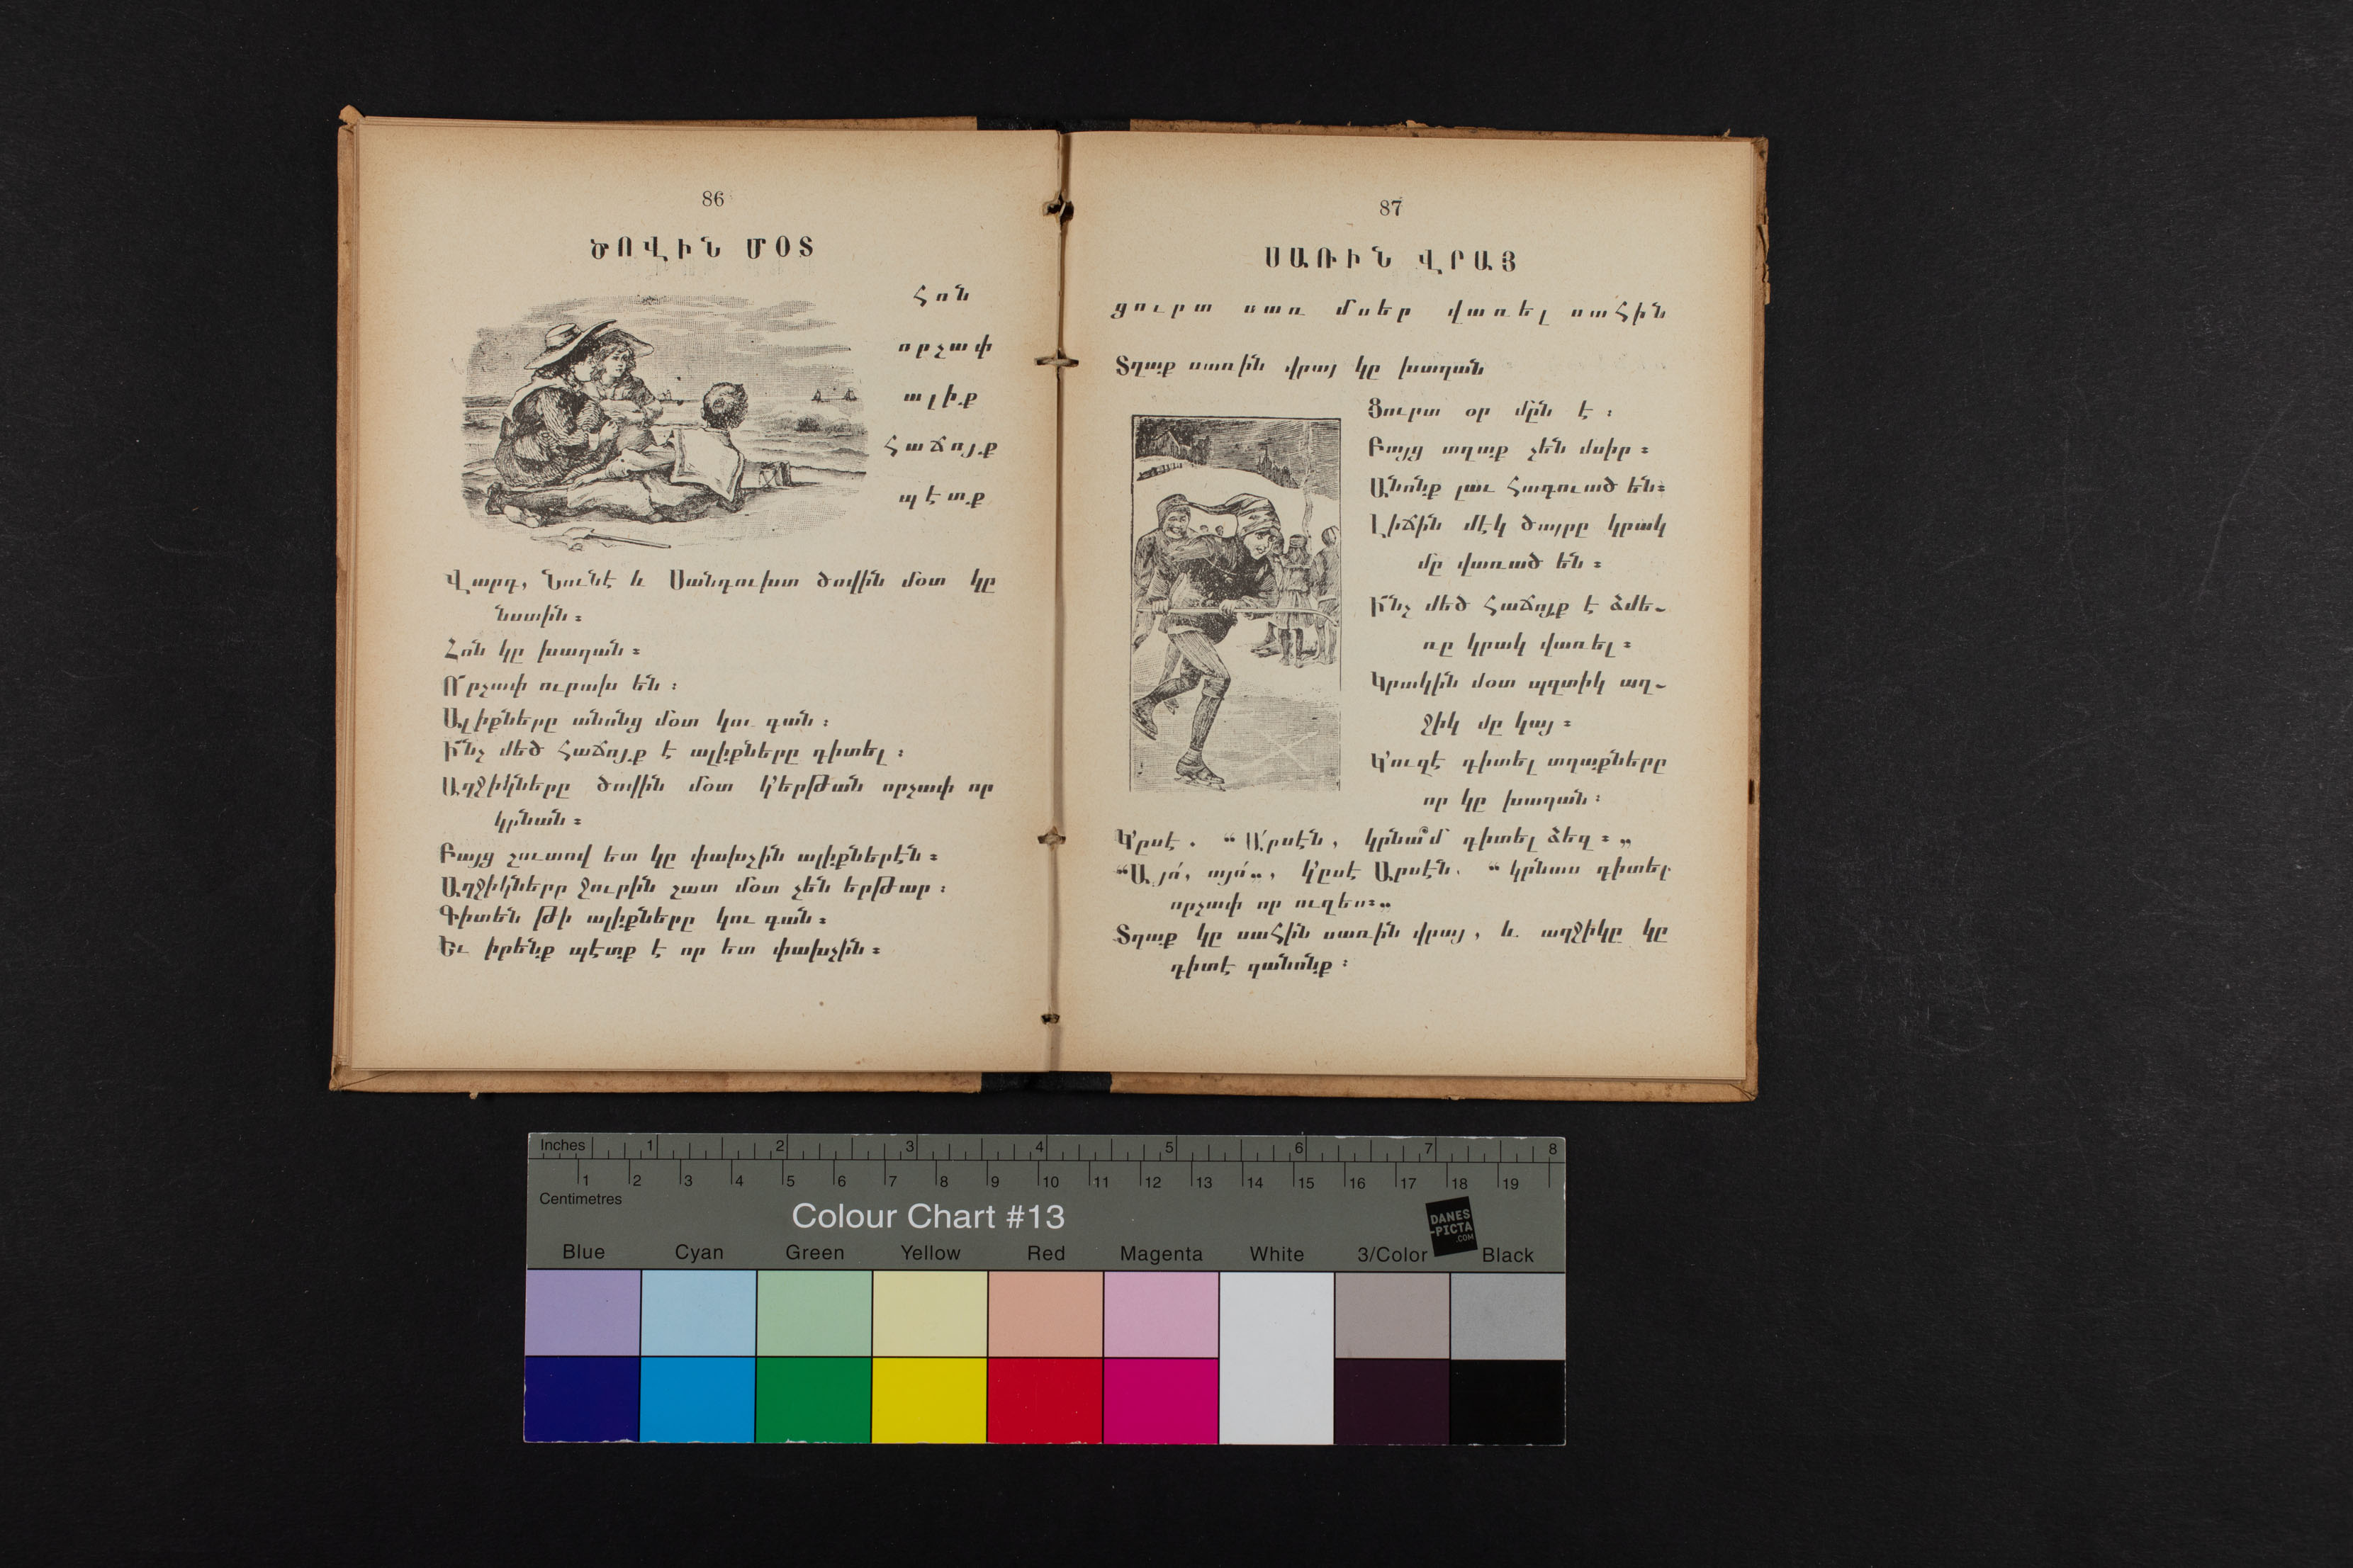 86
ԾՈՎԻՆ ՄՕՏ
Հոն
որչափ
ալիք
Հաճոյք
պէտք
Վարդ, Նունէ և Սանդուխտ ծովին մօտ կը
նստին։
Հոն կը խաղան։
Ո՜րչափ ուրախ են։
Ալիքները անոնց մօտ կու գան։
Ի՜նչ մեծ հաճոյք է ալիքները դիտել։
Աղջիկները ծովին մօտ կ՚երթան որչափ որ
կրնան։
Բայց շուտով ետ կը փախչին ալիքներէն։
Աղջիկները ջուրին շատ մօտ չեն երթար։
Գիտեն թէ ալիքները կու գան։
Եւ իրենք պէտք է որ ետ փախչին։
87
ՍԱՌԻՆ ՎՐԱՅ
ցուրտ սառ մսեր վառել սահին
Տղաք սառին վրայ կը խաղան
Ցուրտ օր մըն է։
Բայց տղաք չեն մսիր։
Անոնք լաւ հագուած են։
Լիճին մէկ ծայրը կրակ
մը վառած են։
Ի՜նչ մեծ հաճոյք է ձմե-
ռը կրակ վառել։
Կրակին մօտ պզտիկ աղ-
ջիկ մը կայ։
Կ՚ուզէ դիտել տղաքները
որ կը խաղան։
Կ՚ըսէ. “Ա՛րսէն, կրնա՞մ դիտել ձեզ։„
“Այո՛, այո՛„, կ՚ըսէ Արսէն. “կրնաս դիտել
որչափ որ ուզես։„
Տղաք կը սահին սառին վրայ, և աղջիկը կը
դիտէ զանոնք։
Inches 1 2 3 4 5 6 7 8
1 2 3 4 5 6 7 8 9 10 11 12 13 14 15 16 17 18 19
Centimetres
Colour Chart #13
DANES
-PICTA
.COM
Blue Cyan Green Yellow Red Magenta White 3/Color Black